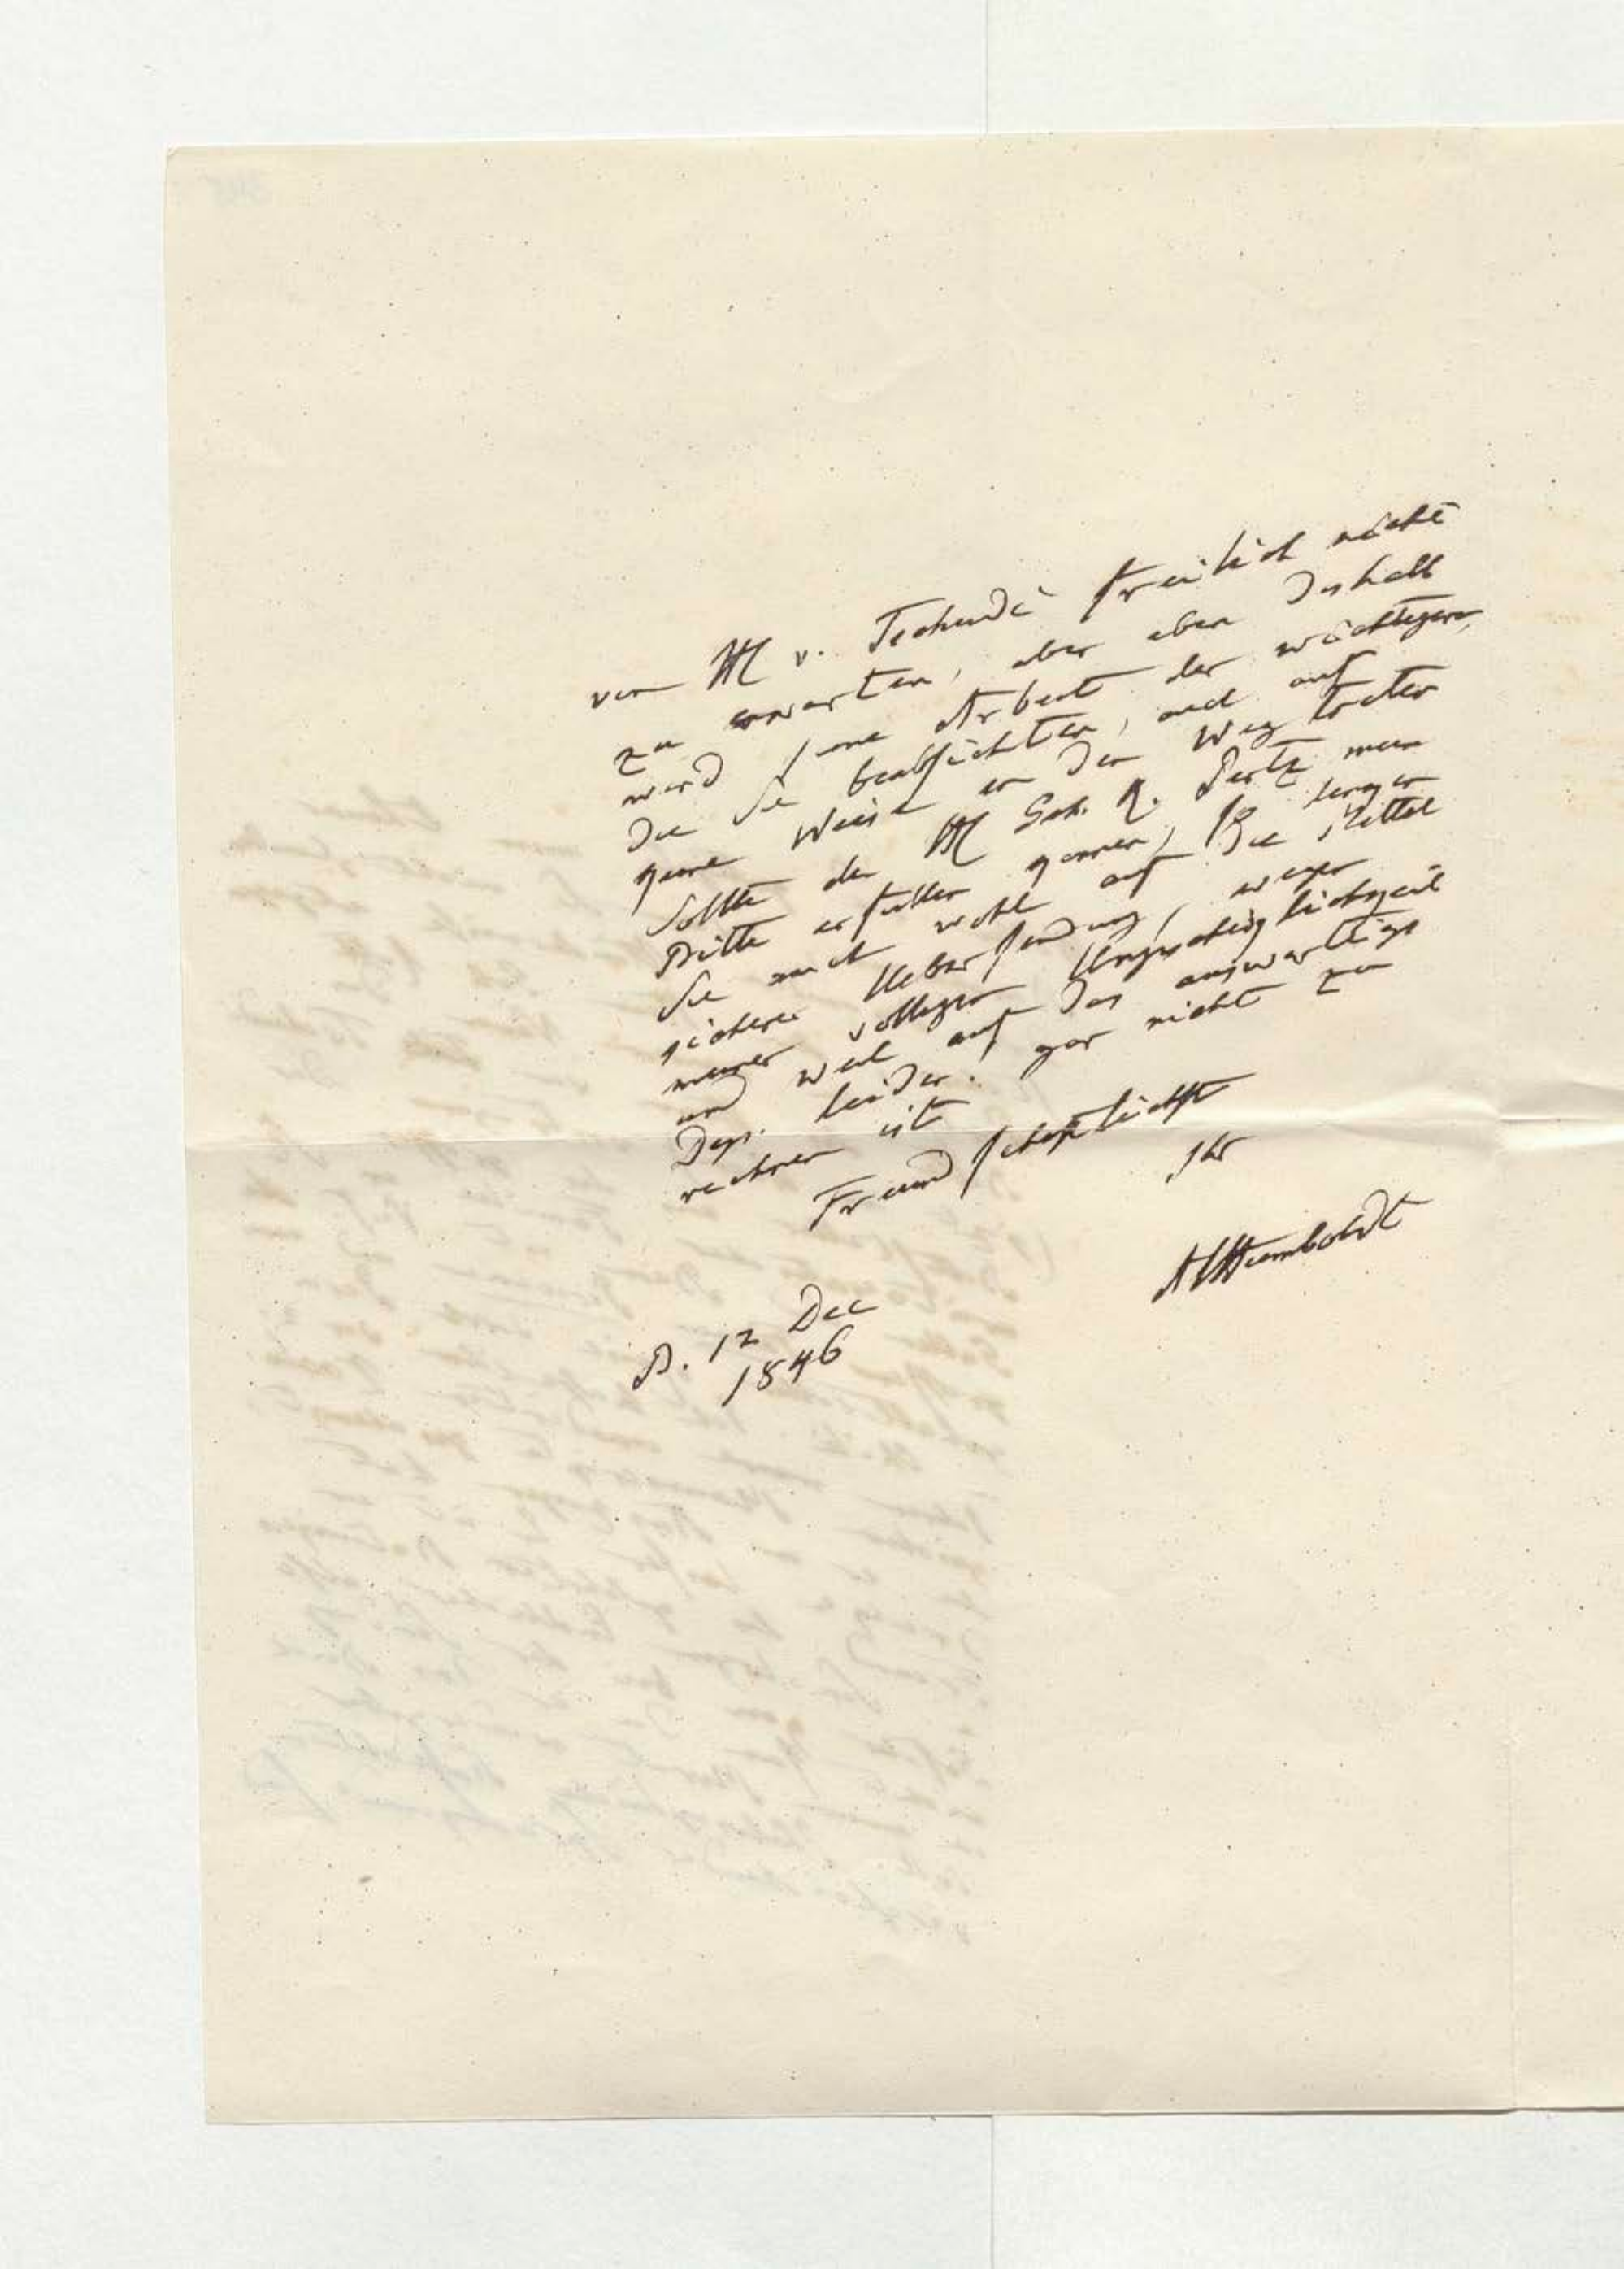 von H v. Tschudi freilich nicht
zu erwarten, aber eben deshalb
wird seine Arbeit der wichtigern,
die Sie beabsichten, auch auf
keine Weise in den Weg treten
Sollte der H Geh. R. Pertz mein
Bitte erfüllen können, so
Sie mich wohl auf die Mittel
sicherer Uebersendung, wegen
meiner völligen
und weil auf das auswärtige
Dep. leider! gar nicht zu
rechnen ist
Freundschaftlichst
Ihr
AlHumboldt
B. 12 Dec
1846